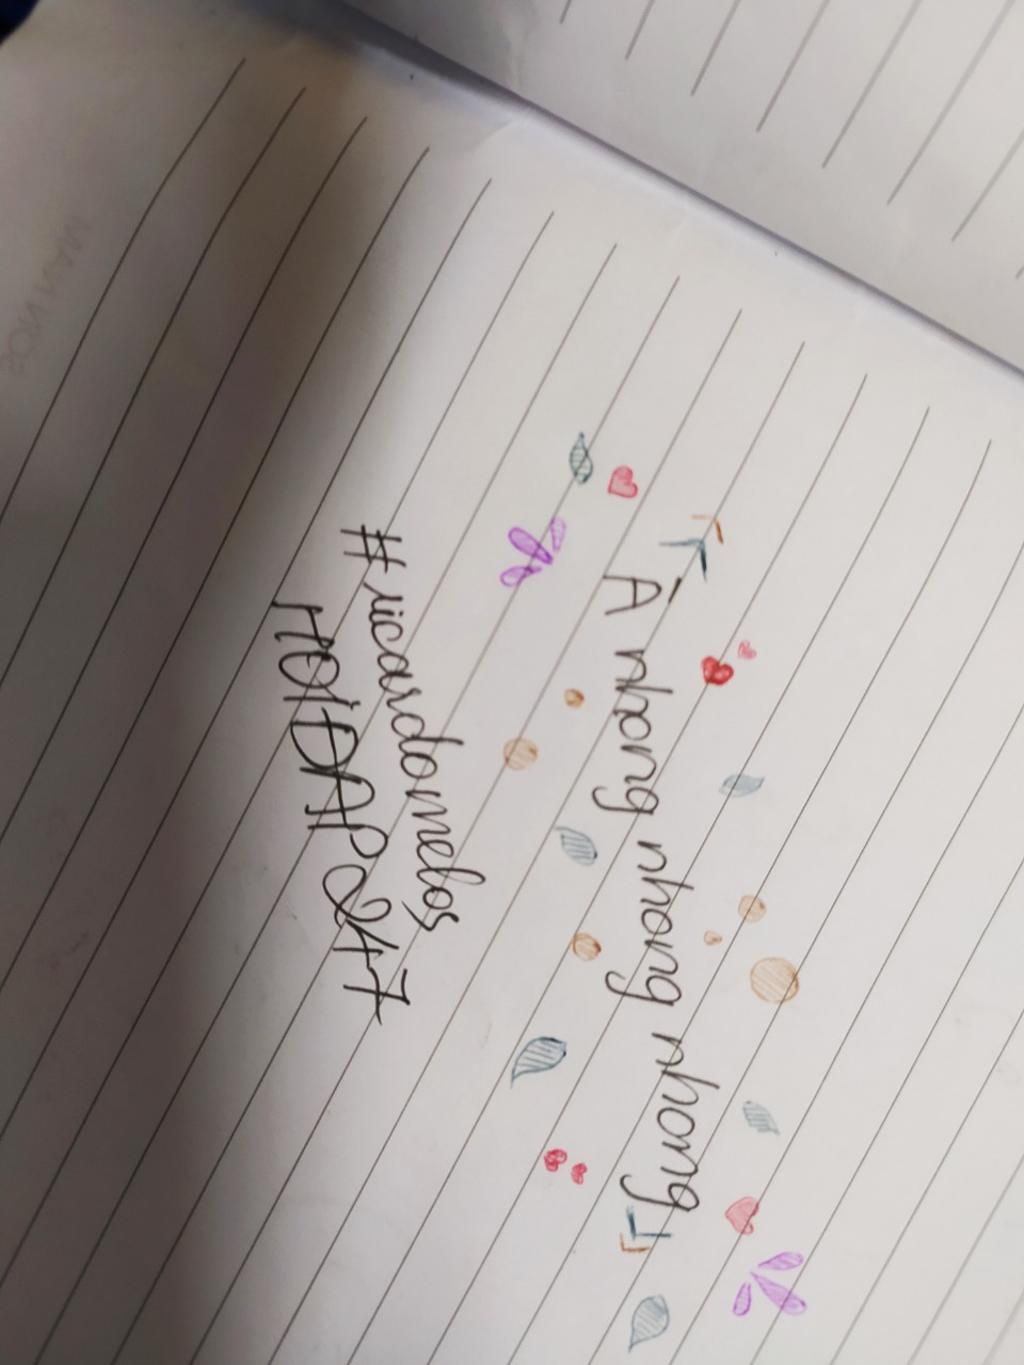 Á nhong nhong nhong
#ricardomelos
HOIDAP247